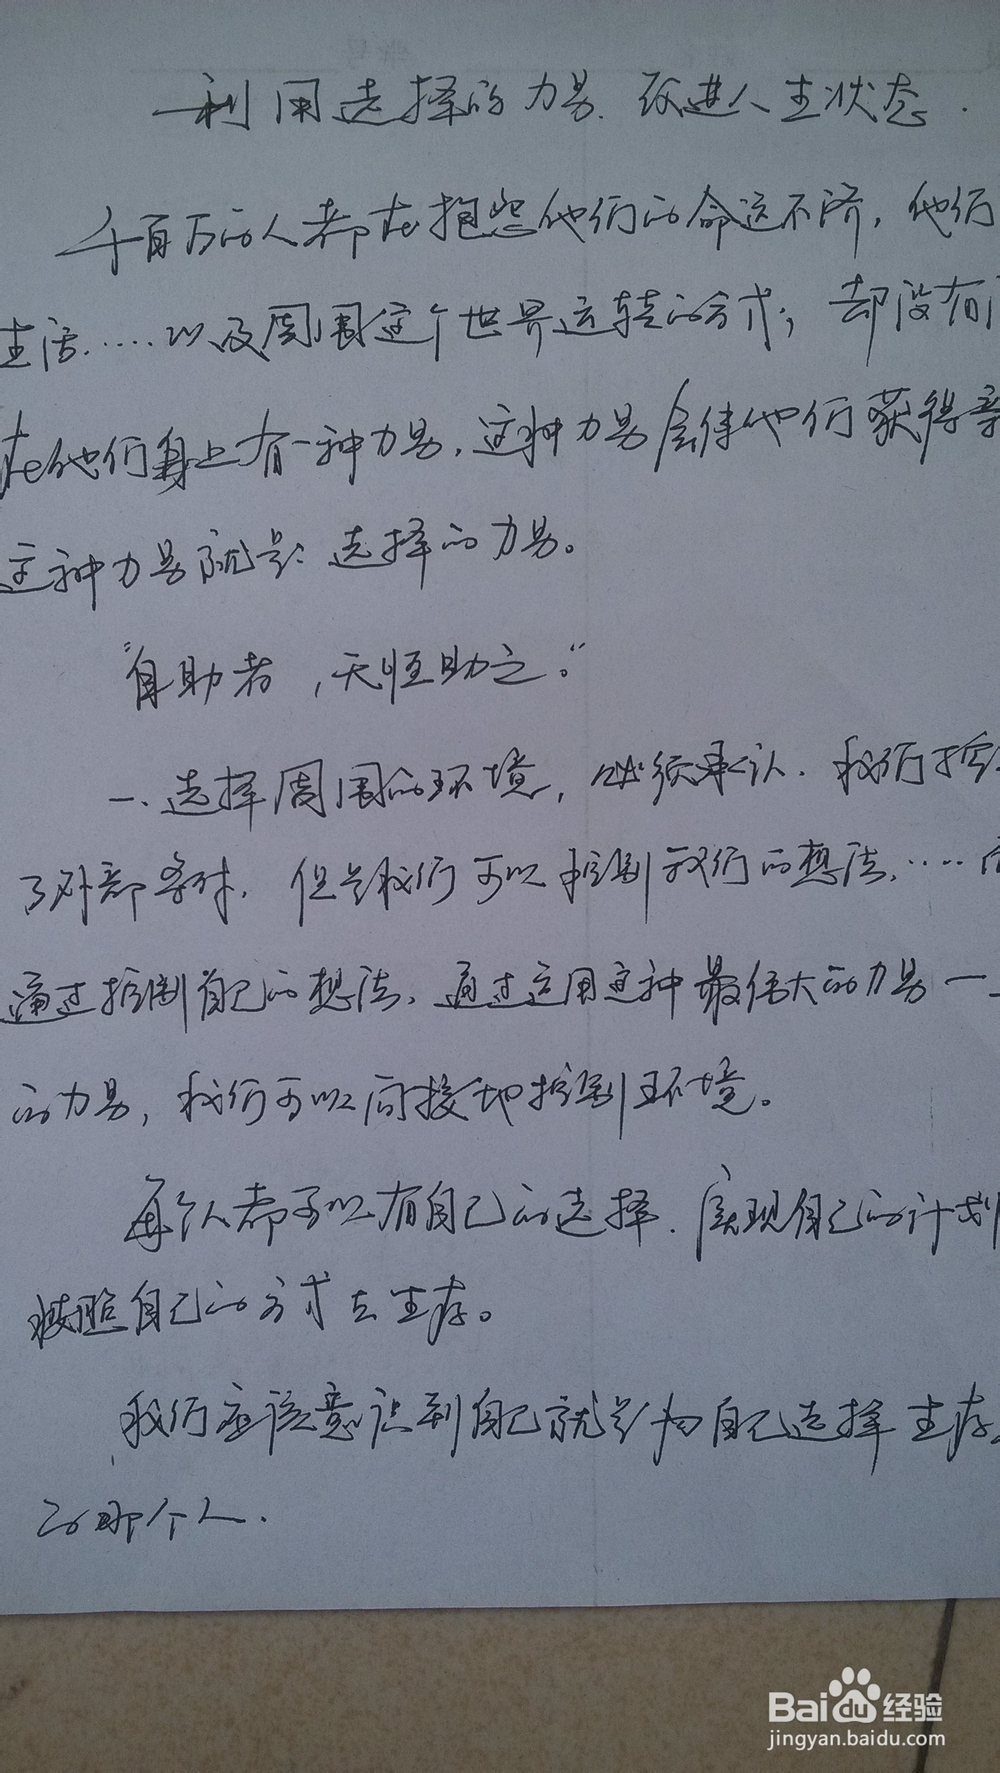 利用选择的力量.改进人生状态.
千百万的人都在抱怨他们的命运不济，他们
生活.....以及周围这个世界运转的方式，却没有
在他们身上有一种力量，这种力量会使他们获得新
这种力量就是：选择的力量。
“自助者，天恒助之。”
一、选择周围的环境，必须承认.我们控
了外部条件，但是我们可以控制我们的想法，.....而
通过控制自己的想法，通过运用这种最伟大的力量一
的力量，我们可以间接地控制环境。
每个人都可以有自己的选择.实现自己的计划
按照自己的方式去生存。
我们应该意识到自己就是为自己选择生存
的那个人.
Baidu经验
jingyan.baidu.com